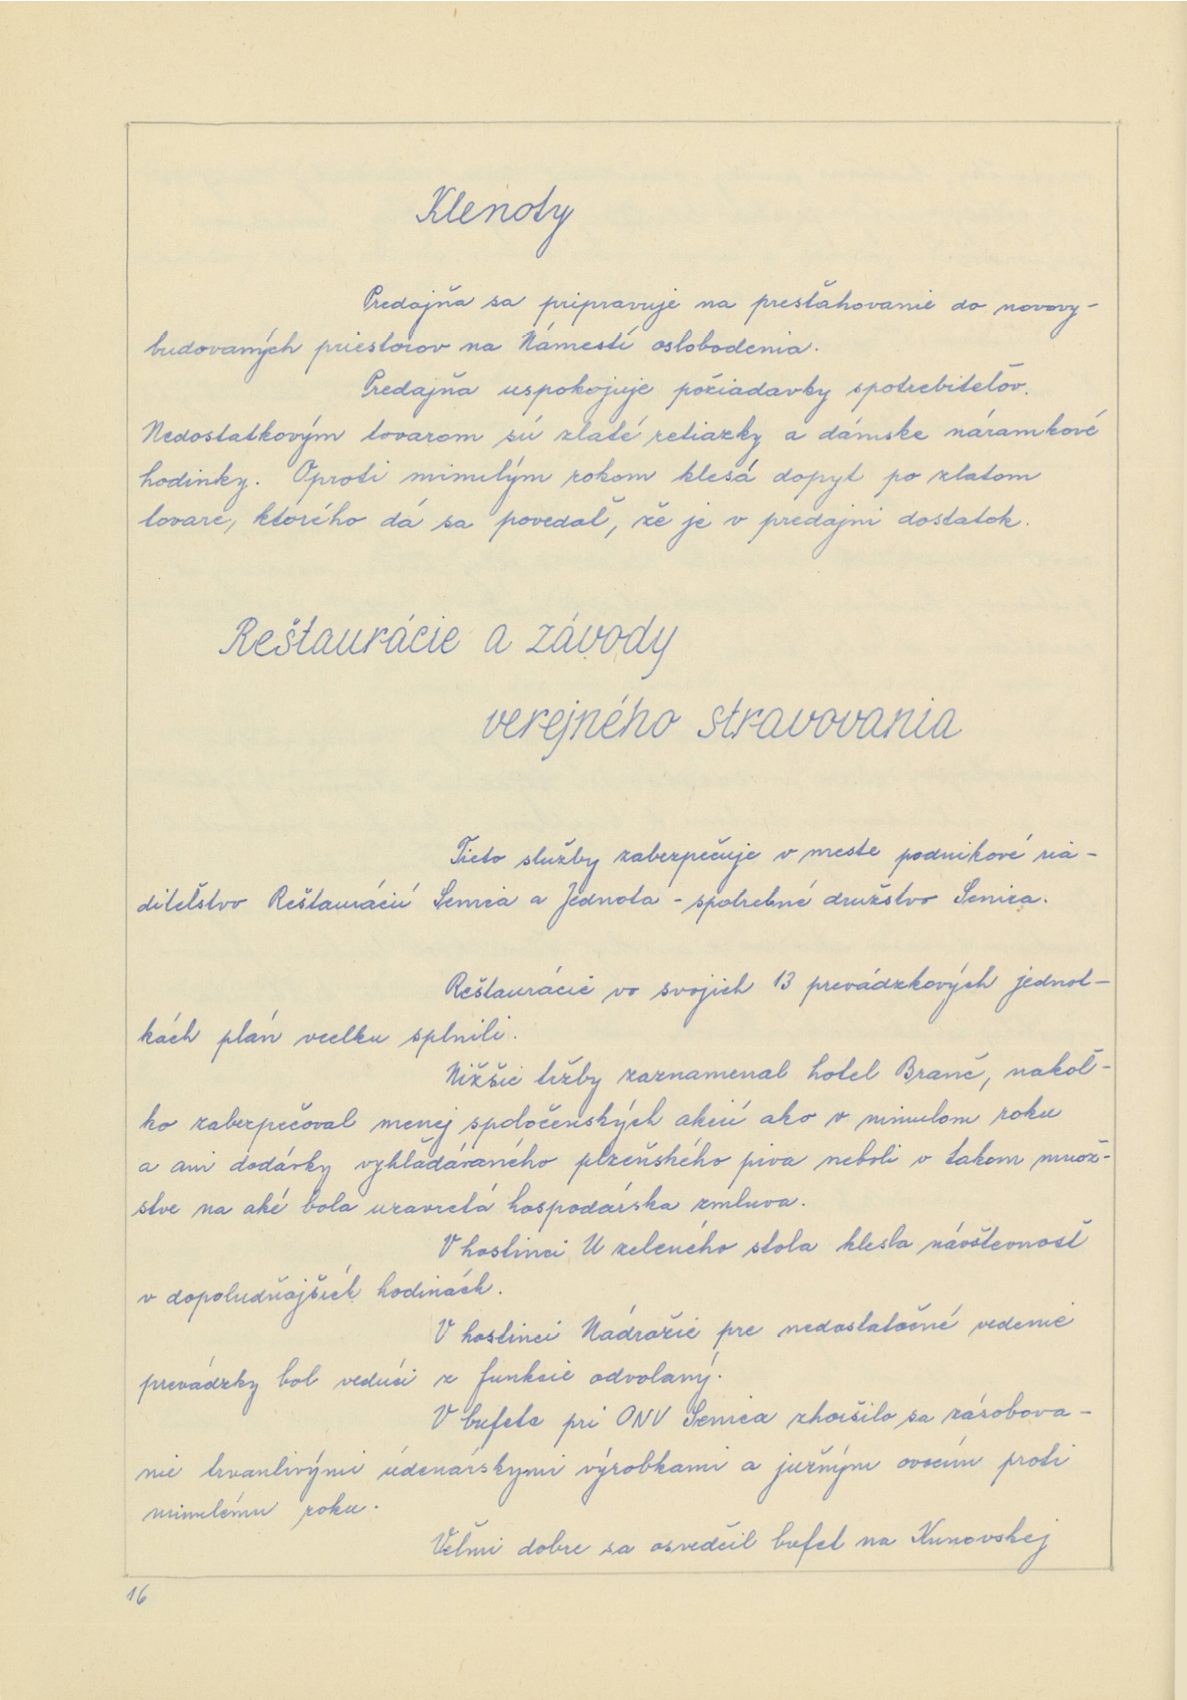 Klenoty
Predajňa sa pripravuje na presťahovanie do novovy-
budovaných priestorov na Námestí oslobodenia.
Predajňa uspokojuje požiadavky spotrebiteľov.
Nedostatkovým tovarom sú zlaté retiazky a dámske náramkové
hodinky. Oproti minulým rokom klesá dopyt po zlatom
tovare, ktorého dá sa povedať, že je v predajni dostatok.
Reštaurácie a závody
verejného stravovania
Tieto služby zabezpečuje v meste podnikové ria-
diteľstvo Reštaurácií Senica a Jednota - spotrebné družstvo Senica.
Reštaurácie vo svojich 13 prevádzkových jednot-
kách plán vcelku splnili.
Nižšie tržby zaznamenal hotel Branč, nakoľ-
ko zabezpečoval menej spoločenských akcií ako v minulom roku
a ani dodávky vyhľadávaného plzeňského piva neboli v takom množ-
stve na aké bola uzavretá hospodárska zmluva.
V hostinci U zeleného stola klesla návštevnosť
v dopoludňajších hodinách.
V hostinci Nádražie pre nedostatočné vedenie
prevádzky bol vedúci z funkcie odvolaný.
V bufete pri ONV Senica zhoršilo sa zásobova-
nie trvanlivými údenárskymi výrobkami a južným ovocím proti
minulému roku.
Veľmi dobre sa osvedčil bufet na Kunovskej
16